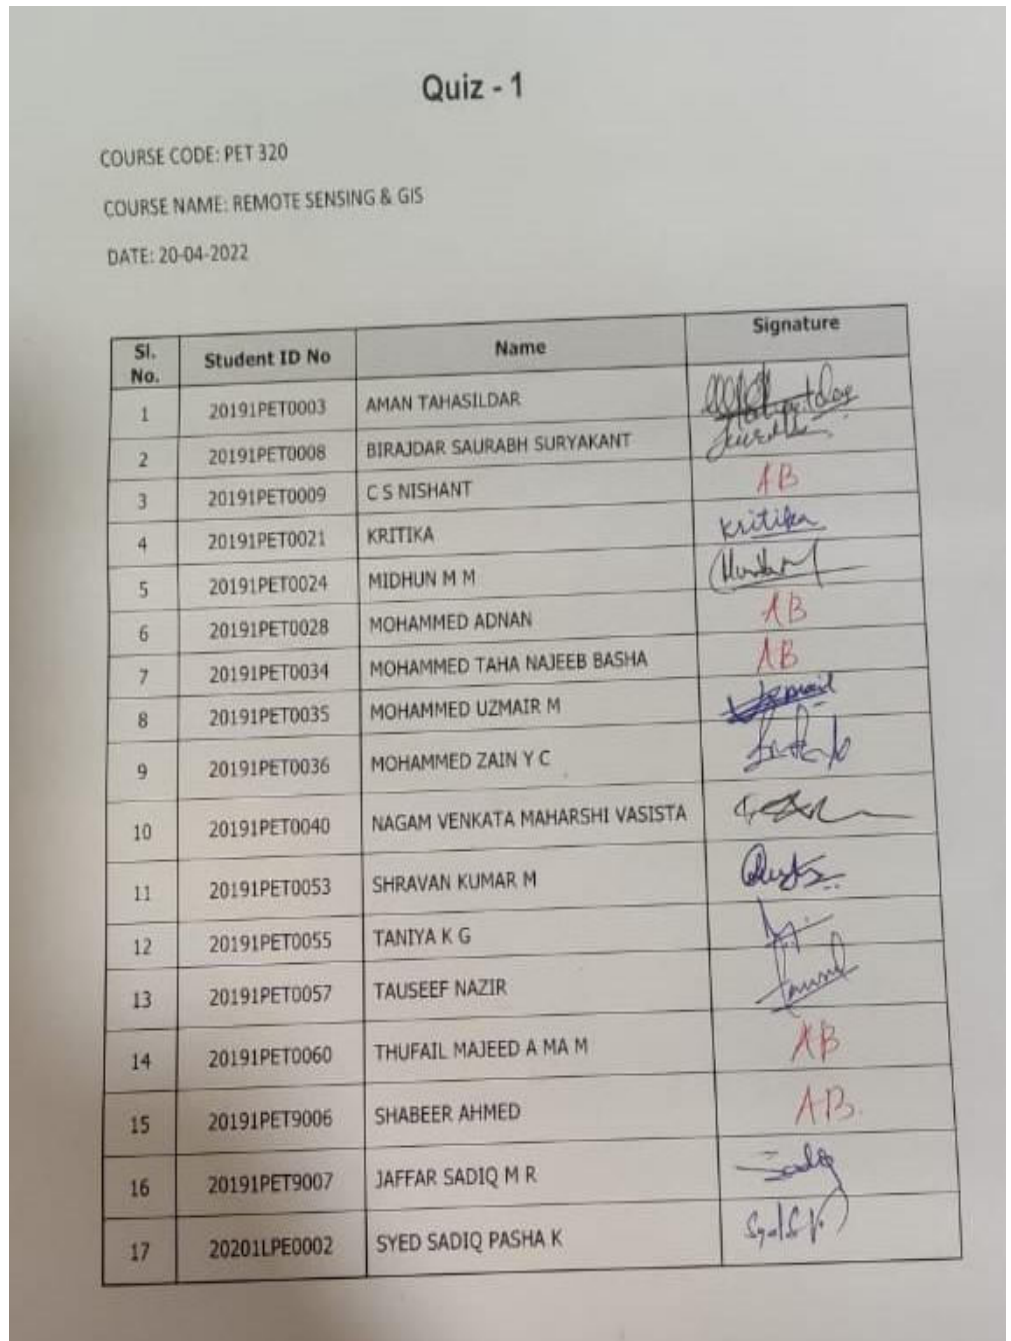 Quiz - 1
COURSE CODE: PET 320
COURSE NAME: REMOTE SENSING & GIS
DATE: 20-04-2022
Sl. No. Student ID No Name Signature
1 20191PET0003 AMAN TAHASILDAR
2 20191PET0008 BIRAJDAR SAURABH SURYAKANT
3 20191PET0009 C S NISHANT AB
4 20191PET0021 KRITIKA Kritika
5 20191PET0024 MIDHUN M M
6 20191PET0028 MOHAMMED ADNAN AB
7 20191PET0034 MOHAMMED TAHA NAJEEB BASHA AB
8 20191PET0035 MOHAMMED UZMAIR M
9 20191PET0036 MOHAMMED ZAIN Y C
10 20191PET0040 NAGAM VENKATA MAHARSHI VASISTA
11 20191PET0053 SHRAVAN KUMAR M
12 20191PET0055 TANIYA K G
13 20191PET0057 TAUSEEF NAZIR
14 20191PET0060 THUFAIL MAJEED A MA M AB
15 20191PET9006 SHABEER AHMED AB.
16 20191PET9007 JAFFAR SADIQ M R
17 20201LPE0002 SYED SADIQ PASHA K